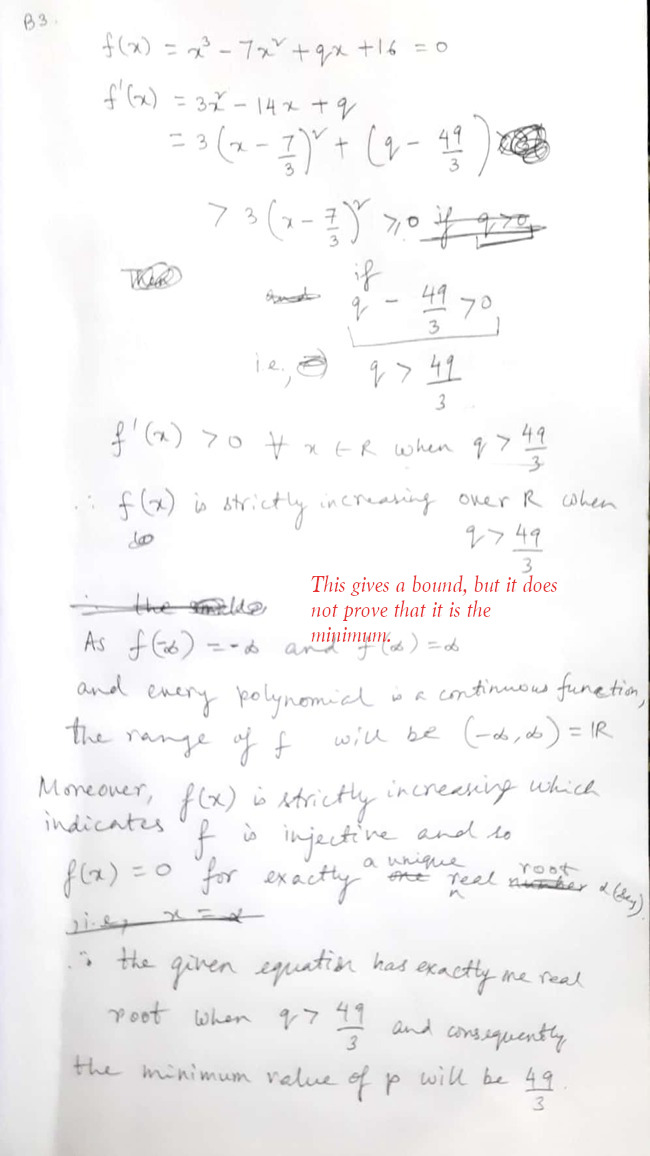 B3.
f(x) = x³ - 7x² + qx + 16 = 0
f'(x) = 3x² - 14x + q
= 3(x - 7/3)² + (q - 49/3)
> 3(x - 7/3)² ≥ 0 if q>0
if
and q - 49/3 > 0
i.e., q > 49/3
f'(x) > 0 ∀ x ∈ R when q > 49/3
∴ f(x) is strictly increasing over R when
q > 49/3
This gives a bound, but it does
not prove that it is the
minimum.
∴ the
As f(-∞) = -∞ and f(∞) = ∞
and every polynomial is a continuous function,
the range of f will be (-∞, ∞) = IR
Moreover, f(x) is strictly increasing which
indicates f is injective and so
f(x) = 0 for exactly one a unique real number root α (say).
i.e., x = α
∴ the given equation has exactly one real
root when q > 49/3 and consequently
the minimum value of p will be 49/3.